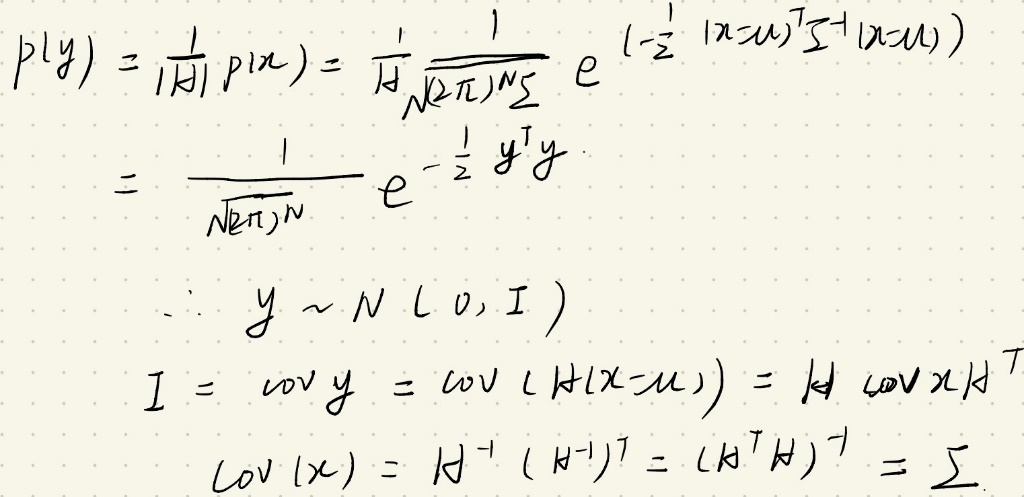 p(y) = 1/|H| p(x) = 1/H 1/√(2π)^N Σ e^(-1/2 (x-μ)^T Σ^-1 (x-μ))
= 1/√(2π)^N e^-1/2 y^T y
∴ y ~ N (0, I)
I = cov y = cov (H(x-μ)) = H cov x H^T
cov (x) = H^-1 (H^-1)^T = (H^T H)^-1 = Σ